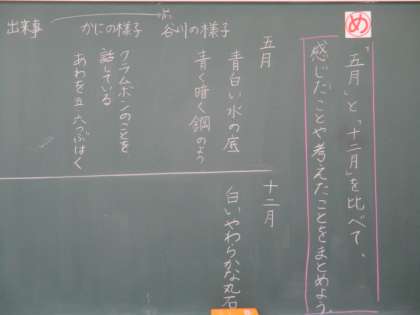 め
「五月」と「十二月」を比べて、
感じたことや考えたことをまとめよう。
谷川の様子
かにの様子
出来事
五月
青白い水の底
青く暗く鋼のよう
クラムボンのことを
話している
あわを五、六つぶはく
十二月
白いやわらかな丸石